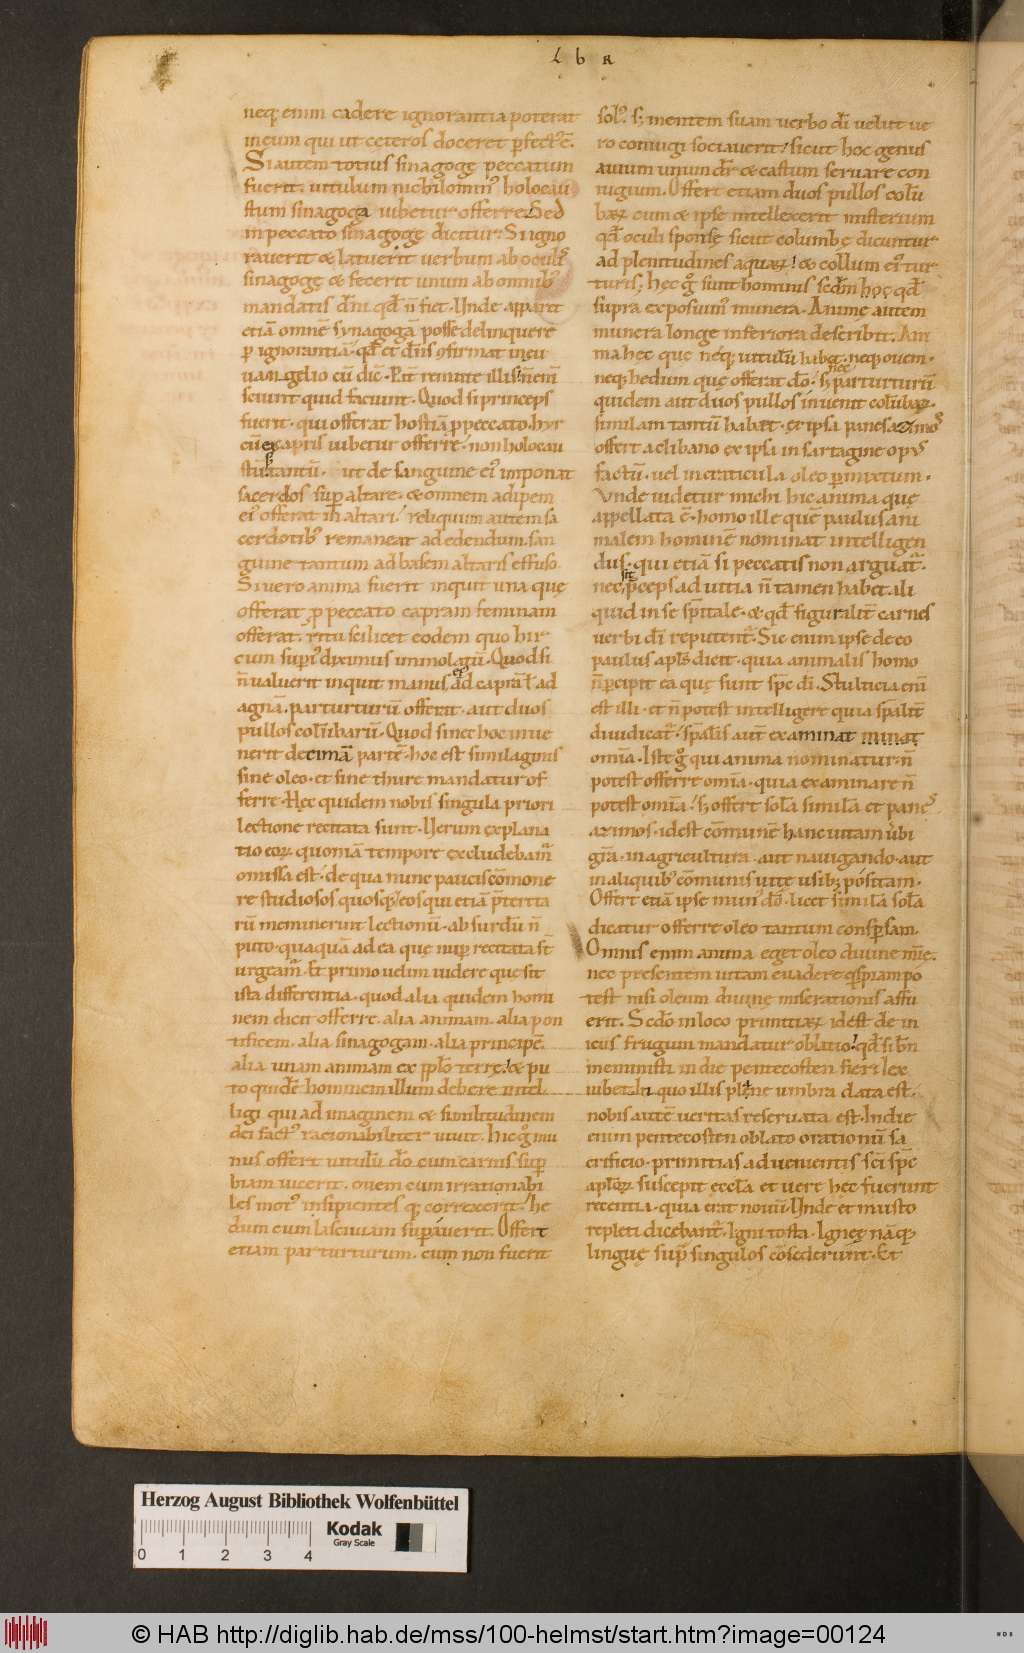 L b R
neq; enim cadere ignorantia poterat
in eum qui ut cęteros doceret ꝑfect᷒ ē.
Si autem totius sinagogę peccatum
fuerit. uitulum nichilomin᷒ holocau
stum sinagoga iubetur offerre. Sed
in peccato sinagogę dicitur. Si igno
rauerit & latuerit uerbum ab oculis
sinagogę & fecerit unum ab omnib᷒
mandatis dn̄i. qd̄ n̄ fiet. Unde apparet
etiā omnē synagogā posse delinquere
ꝑ ignorantiā. qd̄ et dn̄s ꝯfirmat in eu
uangelio cū dic̄. Pat̄ remitte illis. n̄ enī
sciunt quid faciunt. Quod si princeps
fuerit. qui offerat hostiā ꝓ peccato. hyr
cū ex capris iubetur offerre. non holocau
stū tantū. sꝫ ut de sanguine ei᷒ imponat
sacerdos suꝑ altare. & omnem adipem
ei᷒ offerat in altari. reliquum autem sa
cerdotib᷒ remaneat ad edendum. san
guine tantum ad basem altaris effuso.
Si uero anima fuerit inquit una quę
offerat ꝓ peccato capram feminam
offerat. ritu scilicet eodem quo hir
cum supi᷒ diximus immolatū. Quod si
n̄ ualuerit inquit manus ei᷒ ad caprā ł ad
agnā. par turturū offerat. aut duos
pullos colūbarū. Quod si nec hoc inue
nerit decimā partē. hoc est similaginis
sine oleo. et sine thure mandatur of
ferre. Hęc quidem nobis singula priori
lectione recitata sunt. Uerum explana
tio eoꝝ quoniā tempore excludebam᷒
omissa est. de qua nunc paucis cōmone
re studiosos quosq;. eos qui etiā p̄terita
rū meminerint lectionū. absurdū n̄
puto. quaquā ad ea quę nuꝑ recitata st̄
urgeam᷒. Et primo uelim uidere que sit
ista differentia. quod alia quidem homi
nem dicit offerre. alia animam. alia pon
tificem. alia sinagogam. alia principē.
alia unam animam ex pplo terrę. & pu
to quidē hominem illum debere intel
ligi qui ad imaginem & similitudinem
dei fact᷒ racionabiliter uiuit. hic g̊ mu
nus offert uitulū dō. cum carnis suꝑ
biam uicerit. ouem cum irrationabi
les mot᷒ insipientes q; correxerit. he
dum cum lasciuiam suꝑauerit. Offert
etiam par turturum. cum non fuerit
sol᷒. sꝫ mentem suam uerbo dī uelut ue
ro coniugi sociauerit. sicut hoc genus
auium unum dr̄ & castum seruare con
iugium. Offert etiam duos pullos colū
baꝝ cum & ipse intellexerit misterium
qd̄ oculi sponsę sicut columbę dicuntur
ad plenitudines aquaꝝ. & collum ei᷒ tur
turis. hec g̊ sunt hominis scdm̄ hoc qd̄
supra exposuim᷒ munera. Animę autem
munera longe inferiora describit. Ani
ma hec quę neq; uitulū habet. neq; ouem.
neq; hedum quę offerat dō. sꝫ nec par turturū
quidem aut duos pullos inuenit colūbaꝝ.
similam tantū habet. ex ipsa panes azimos
offert a clibano ex ipsa in sartagine op᷒
factū. uel in craticula oleo ꝑmixtum.
Unde uidetur michi hic anima quę
appellata ē. homo ille quē paulus ani
malem hominē nominat intelligen
dus. qui etiā si peccatis non arguat᷒.
nec sit p̄ceps ad uitia n̄ tamen habet ali
quid in se sp̄itale. & qd̄ figuralit̄ carnes
uerbi dī reputent᷒. Sic enim ipse de eo
paulus apl̄s dicit. quia animalis homo
n̄ ꝑcipit ea quę sunt sp̄c dī. Stulticia enī
est illi. et n̄ potest intelligere quia sp̄alit̄
diiudicat᷒. sp̄alis aut̄ examinat
omīa. Iste g̊ qui anima nominatur. n̄
potest offerre omīa. quia examinare n̄
potest omīa. sꝫ offert solā similā et panes
azimos. idest cōmunē hanc uitam ubi
grā. in agricultura. aut nauigando. aut
in aliquib᷒ cōmunis uite usib; positam.
Offert etiā ipse mun᷒ dō. licet similā solā
dicatur offerre oleo tantum consꝑsam.
Omnis enim anima eget oleo diuine mīę.
nec presentem uitam euadere quispiam po
test nisi oleum diuinę miserationis affu
erit. Scdo in loco primitiaꝝ idest de in
icus frugum mandatur oblatio. qd̄ si bn̄
meministi in die pentecosten fieri lex
iubet. qui quo illis plene umbra data est.
nobis autē ueritas reseruata est. In die
enim pentecosten oblato orationū sa
crificio. primitias aduenientis sc̄i sp̄c
aplōꝝ suscepit ęccl̄a. et uere hęc fuerunt
recentia. quia erat nouū. Unde et musto
repleti dicebant᷒. Igni tosta. Igneę nāq;
linguę suꝑ singulos cōsederunt. Et
Herzog August Bibliothek Wolfenbüttel
Kodak
Gray Scale
0 1 2 3 4
© HAB http://diglib.hab.de/mss/100-helmst/start.htm?image=00124